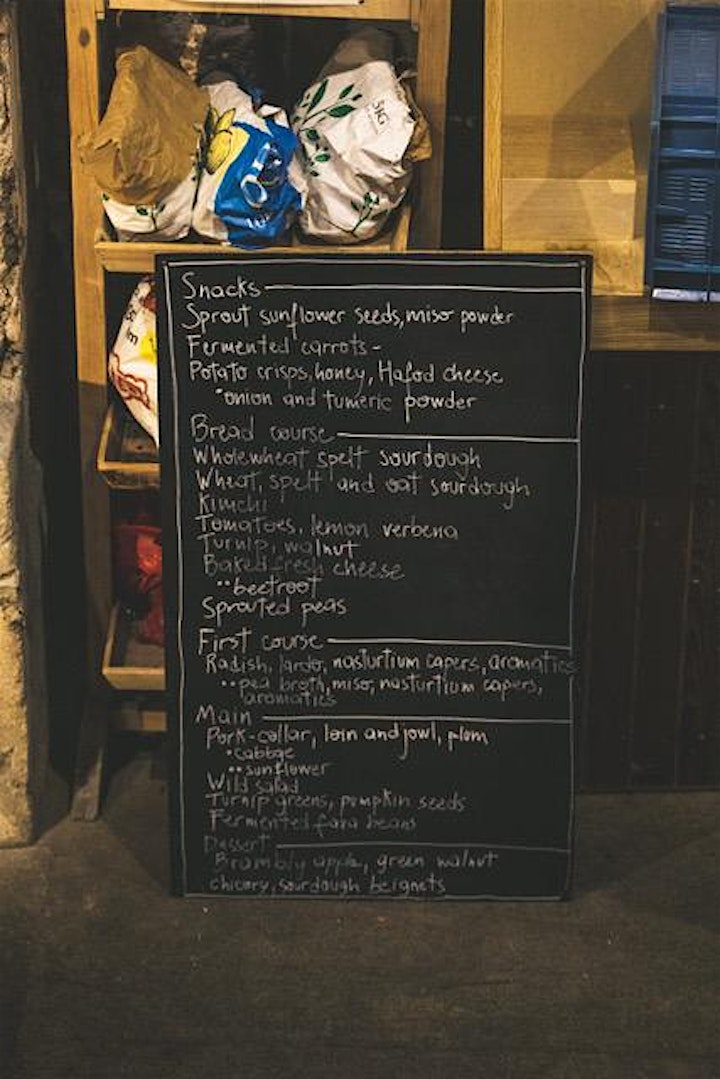 Snacks
Sprout sunflower seeds, miso powder
Fermented carrots -
Potato crisps, honey, Hafod cheese
•onion and tumeric powder
Bread course
Wholewheat spelt sourdough
Wheat, spelt and oat sourdough
Kimchi
Tomatoes, lemon verbena
Turnip, walnut
Baked fresh cheese
••beetroot
Sprouted peas
First course
Radish, lardo, nasturtium capers, aromatics
••pea broth, miso, nasturtium capers,
aromatics
Main
Pork-collar, loin and jowl, plum
•cabbge
••sunflower
Wild salad
Turnip greens, pumpkin seeds
Fermented fava beans
Dessert
Brambly apple, green walnut
chicory, sourdough beignets